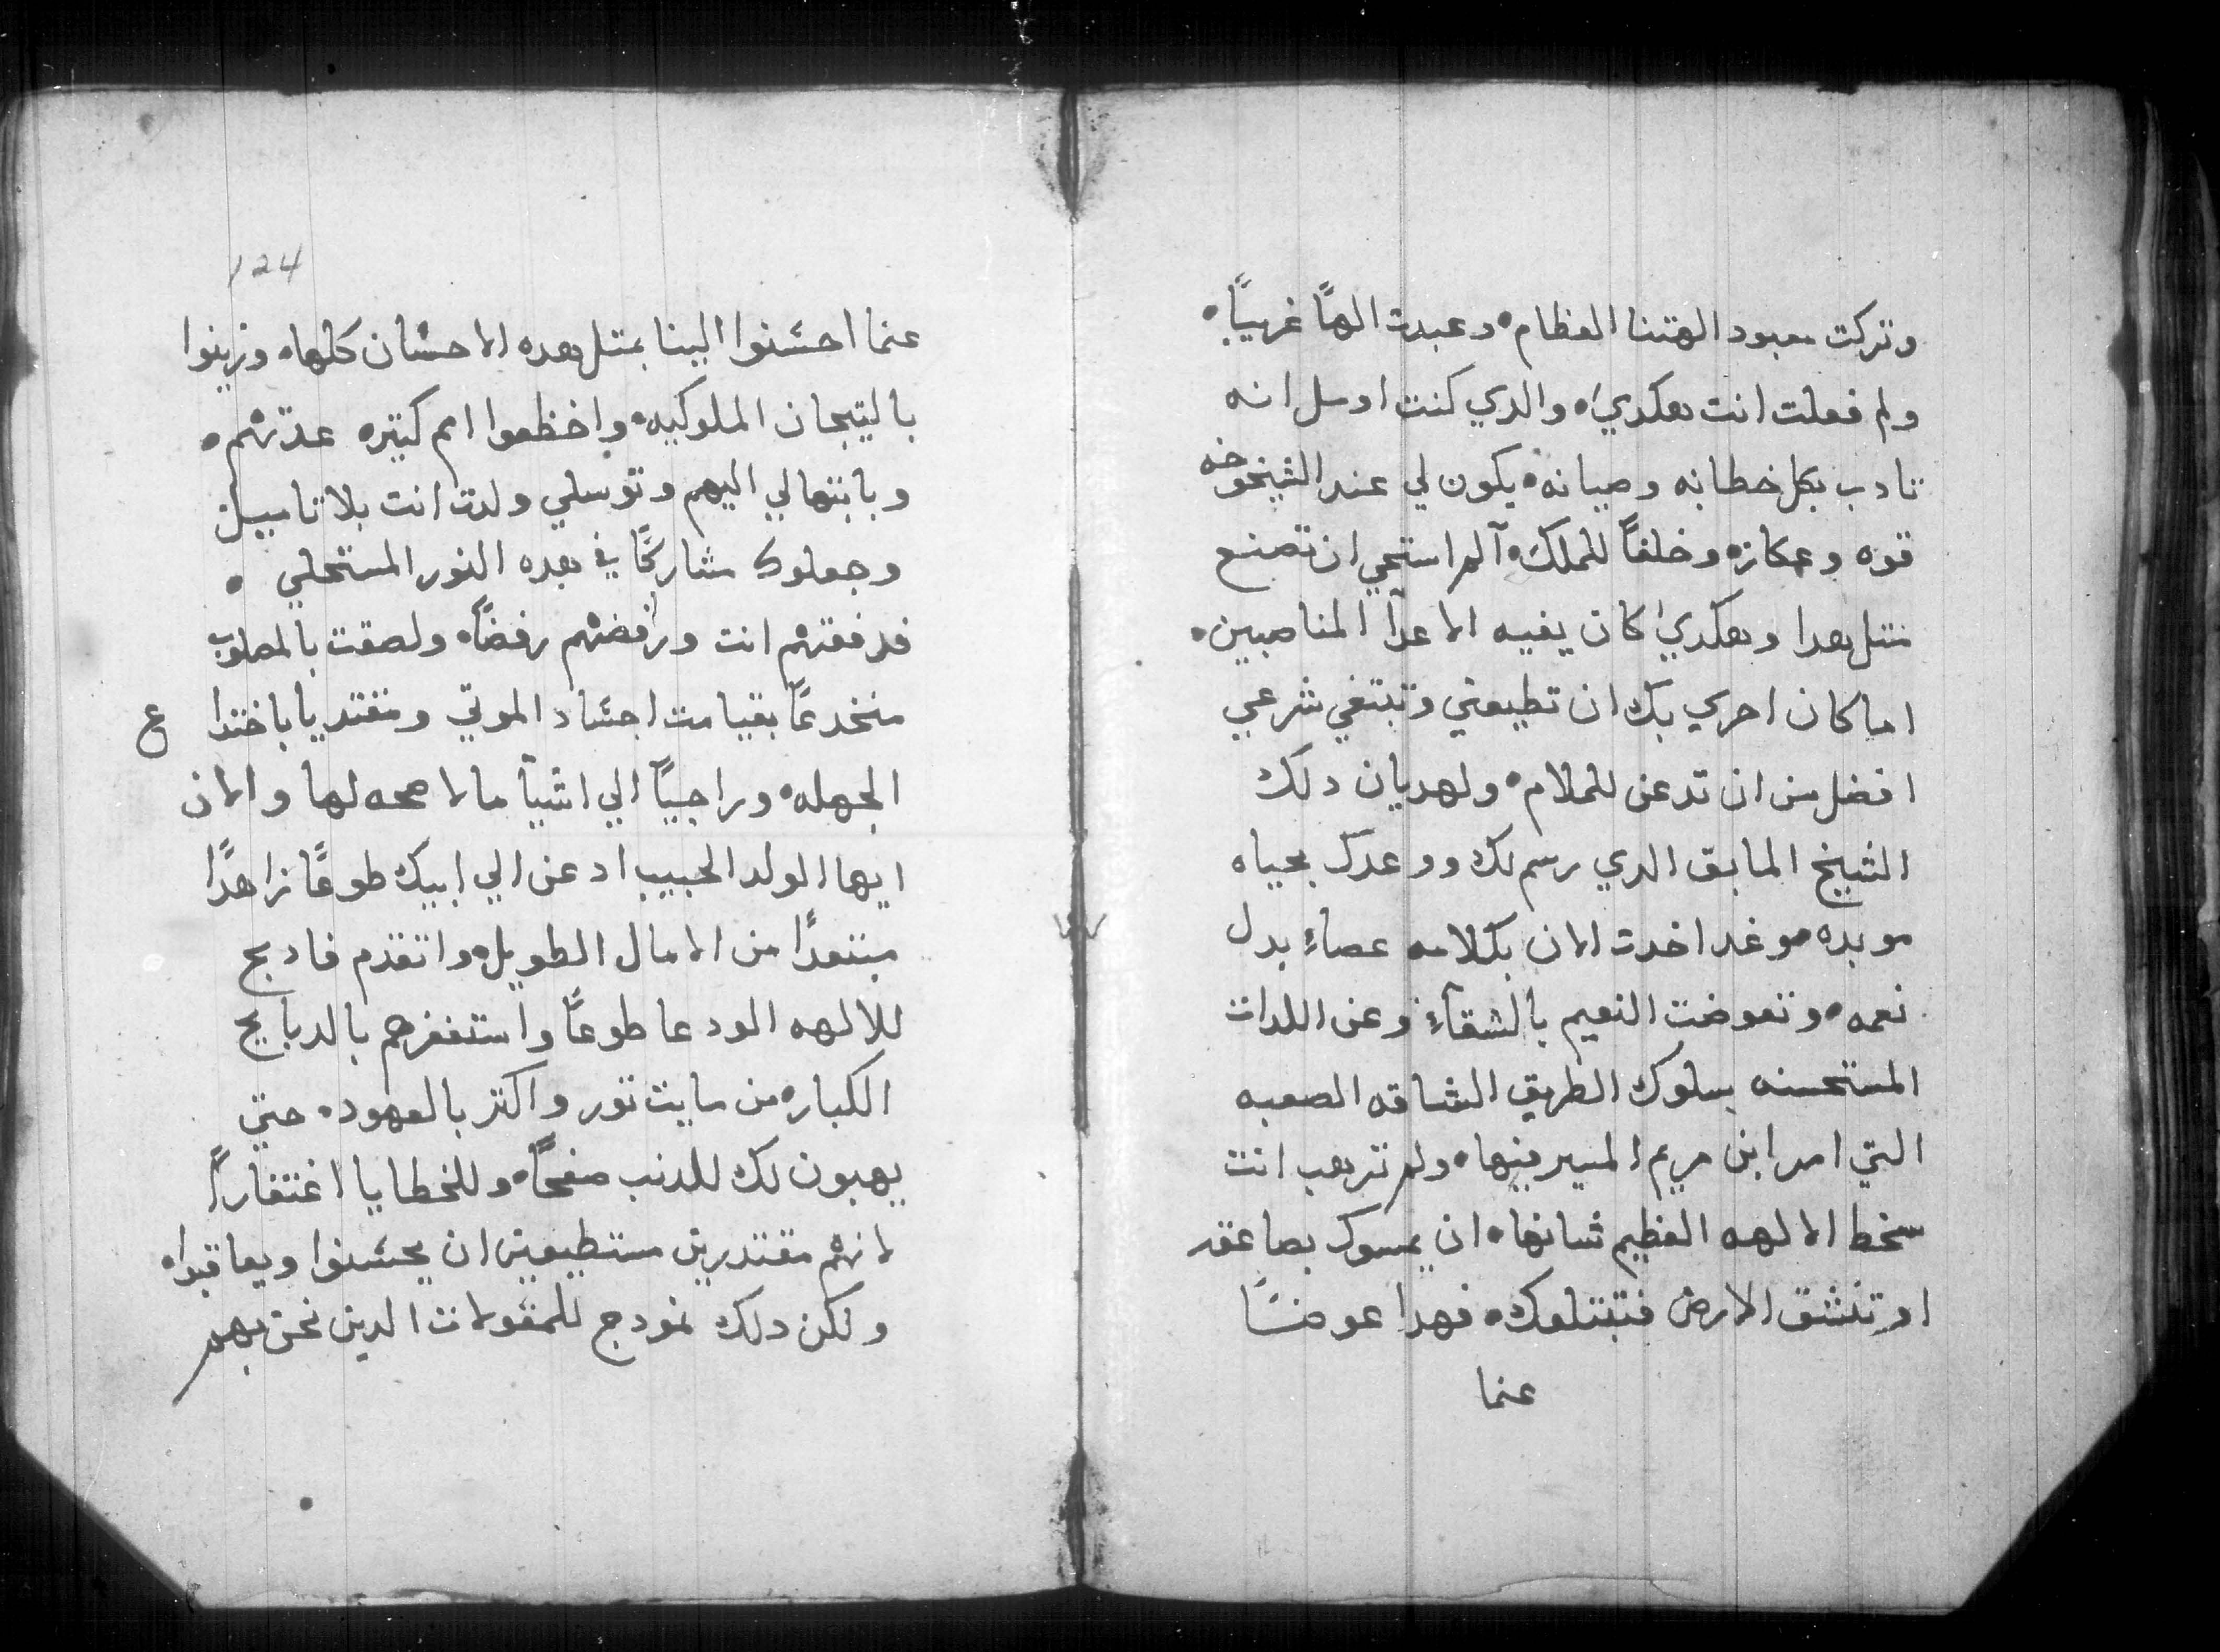 وتركت معبود الهتنا العظام۰ وعبدت الهًا غريبًا۰
ولم فعلت انت هكدي۰ والدي كنت اوسل انه
تادب بكل خطابه وصيانه۰ يكون لي عند الشيخوخه
قوه وعكازه وخلفًا للملك۰ آلم استحي ان تصنع
متل هدا وهكدي كان يفيه الاعدآ المناصبين۰
اما كان احري بك ان تطيعني وتبتغي شرعي
افضل من ان تدعن للملام۰ ولهديان دلك
الشيخ المابق الدي رسم لك ووعدك بحياه
موبده موغدا خدت الان بكلامه عصاءً بدل
نعمه۰ وتعوضت النعيم بالشقآءِ وعن اللدات
المستحسنه بسلوك الطريق الشاقه الصعبه
التي امر ابن مريم المسير فيها۰ ولم ترهب انت
سخط الالهه العظيم شانها۰ ان يمسوك بصاعقه
او تنشق الارض فتبتلعك۰ فهدا عوضًا
عنما
124
عنما احسنوا الينا بمتل هده الاحسان كلها۰ وزينوا
بالتيجان الملوكيه۰ واخظعوا امم كتيره عدتهم۰
وبابتهالي اليهم وتوسلي ولدت انت بلا تاميل
وجعلوك مشاركًا في هده النور المستحلي ۰
فدفعتهم انت ورافضتهم رفضًا۰ ولصقت بالمصلوب
منخدعًا بقيامت اجساد الموتي ومقتديا باختدا
ع
الجهله۰ وراجيًا الي اشيآ ما لا صحه لها والان
ايها الولد الحبيب ادعن الي ابيك طوعًا زاهدًا
مبتعدًا من الامال الطويله۰ واتقدم فادبح
للالهه الودعا طوعًا واستغفرهم بالدبايح
الكباره من مايت تور واكتر بالعهوده حتي
يهبون لك للدنب صفحًا۰ وللخطايا اغتفارًا
لانهم مقتدرين مستطيعين ان يحسنوا ويعاقبوا۰
ولكن دلك نمودج للمقولات الدين نحن بهم